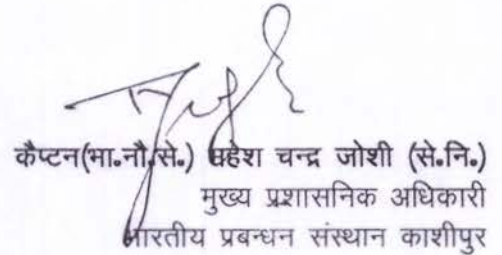 कैप्टन(भा॰नौ॰से॰) महेश चन्द्र जोशी (से॰नि॰)
मुख्य प्रशासनिक अधिकारी
भारतीय प्रबन्धन संस्थान काशीपुर